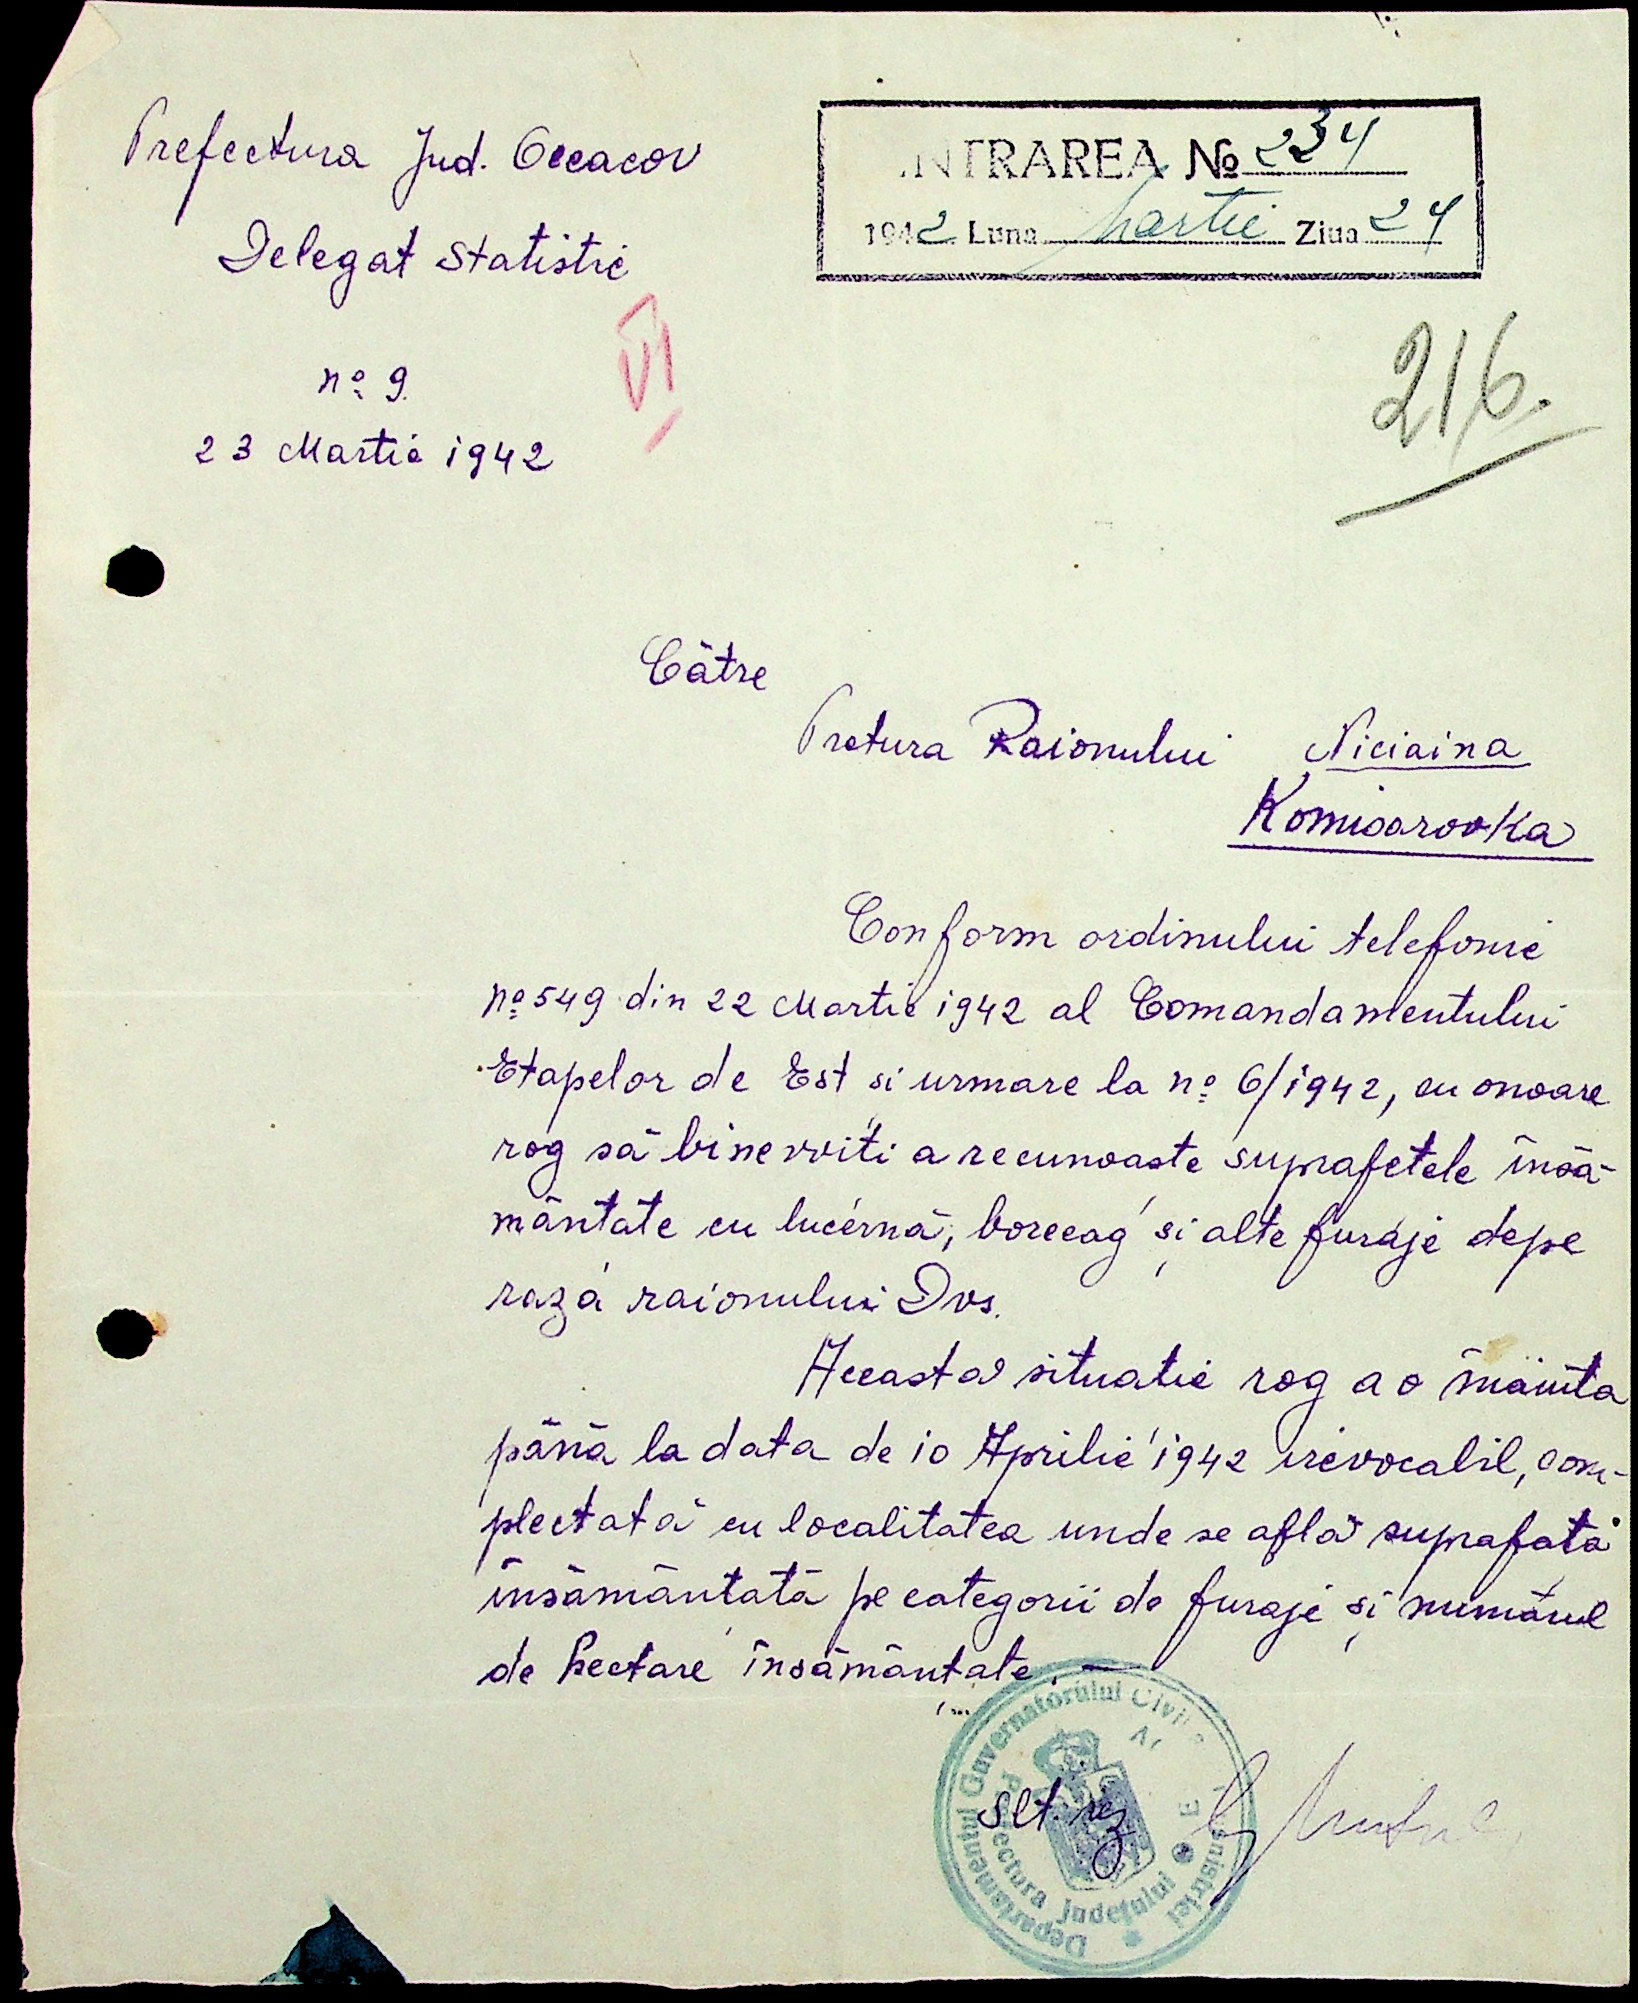 Prefectura Jud. Oceacov
Delegat Statistic
No 9.
23 Martie 1942
INTRAREA No 234
1942 Luna Martie Ziua 24
VI
216.
Către
Pretura Raionului Niciaina
Komisarovka
Conform ordinului telefonic
No 549 din 22 Martie 1942 al Comandamentului
Etapelor de Est si urmare la no 6/1942, cu onoare
rog să binevoiți a recunoaste suprafetele însă-
mânțate cu lucernă, borceag și alte furaje depe
raza raionului Dvs.
Aceasta situatie rog a o înainta
până la data de 10 Aprilie 1942 irevocabil, com-
plectată cu localitatea unde se află suprafața
însămânțată pe categorii de furaje și numărul
de hectare însămânțate. —
Slt. rez
Departamentul Guvernatorului Civil
Prefectura Județului